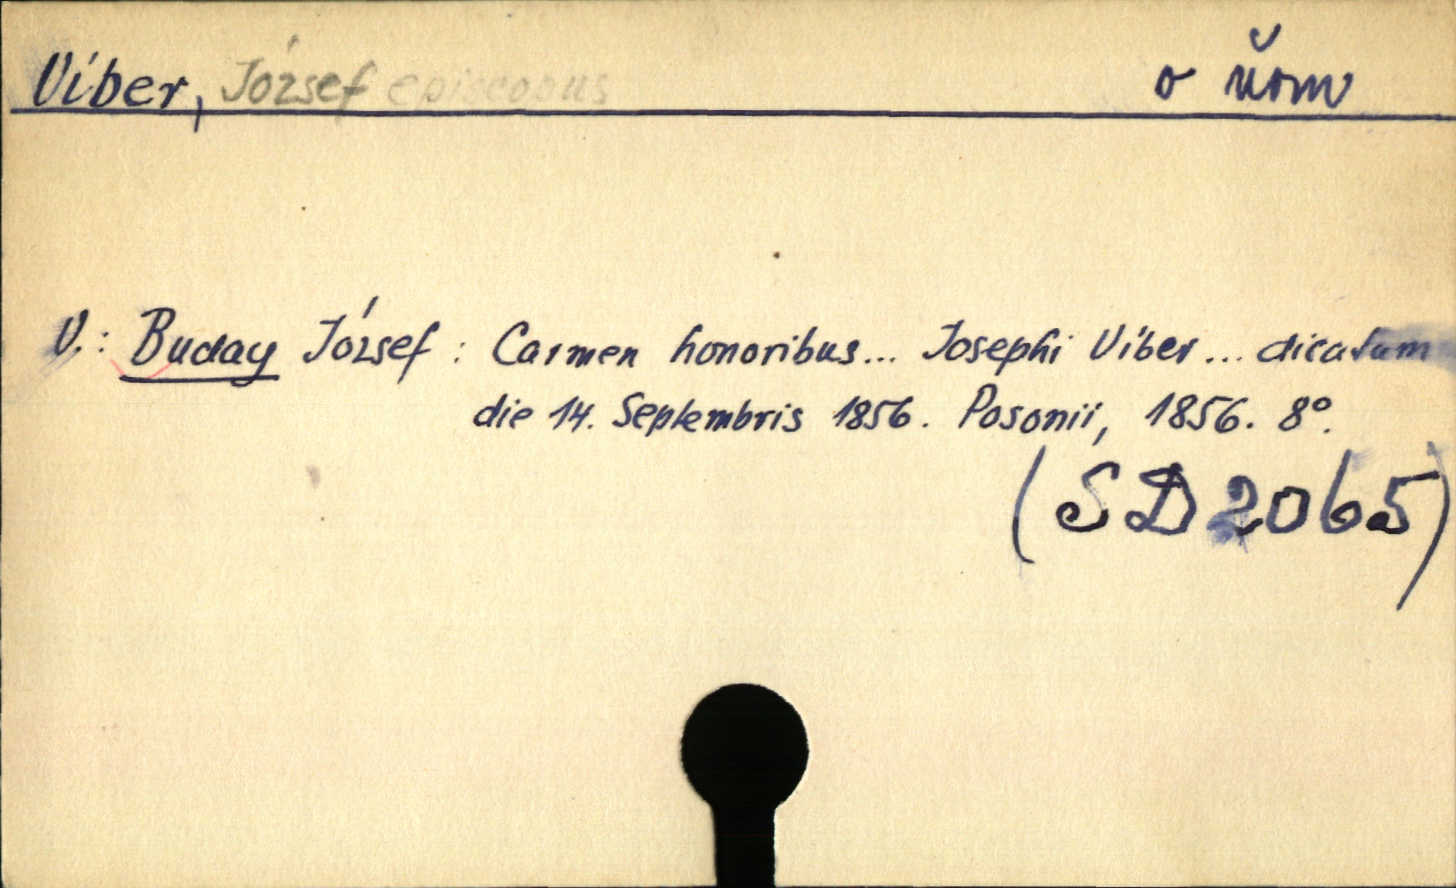 Viber, József episcopus o ňom
V.: Buday József: Carmen honoribus... Josephi Viber... dicatum
die 14. Septembris 1856. Posonii, 1856. 8°.
(SD2065)